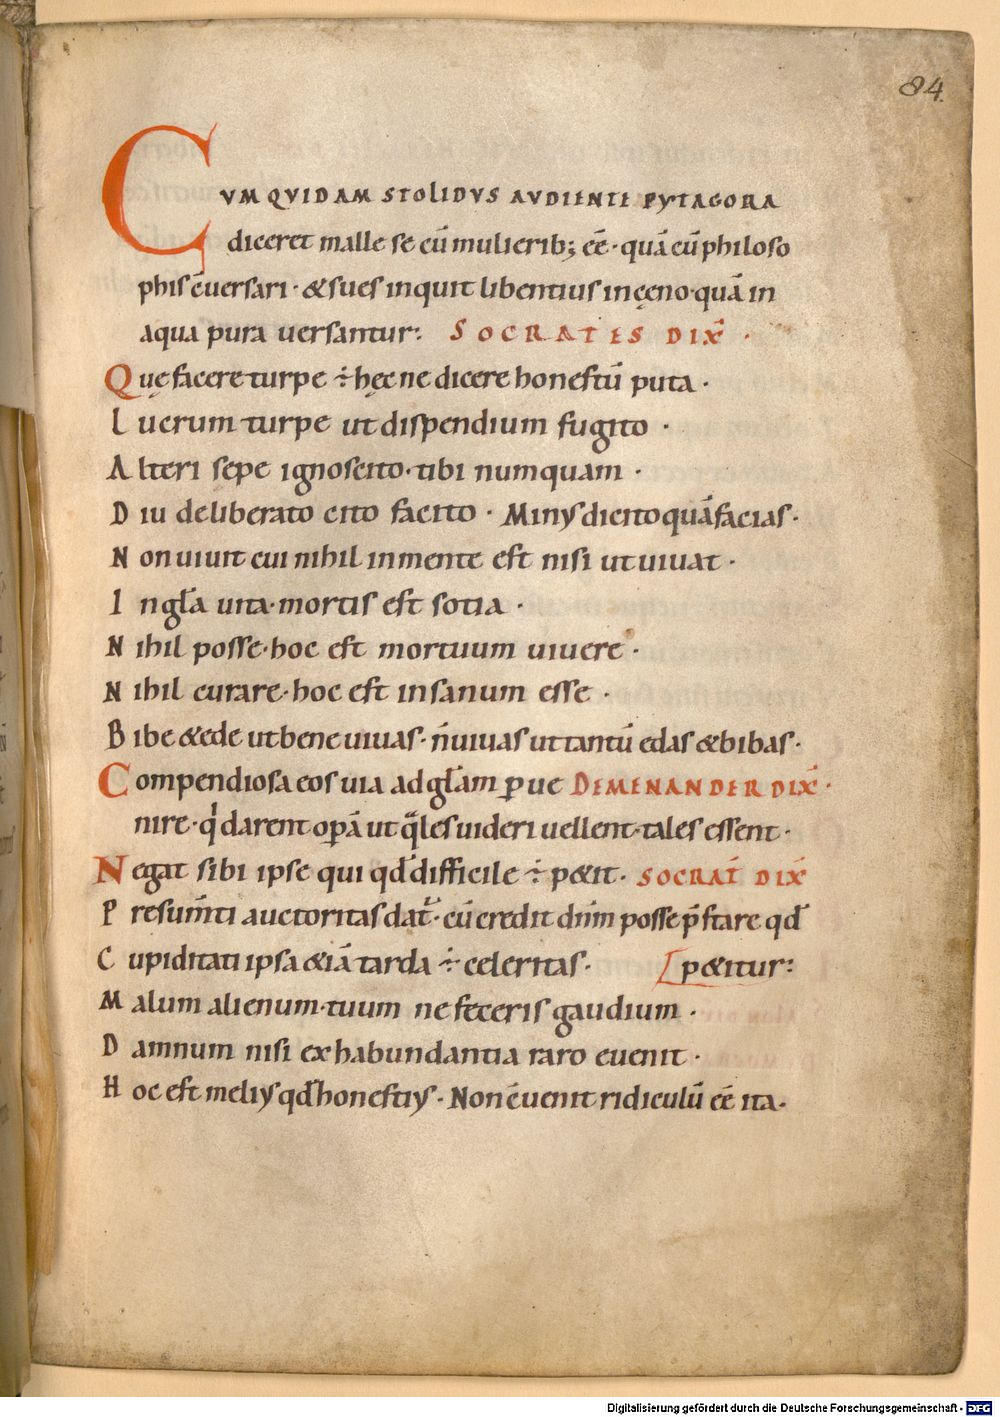 84.
CVM QVIDAM STOLIDVS AVDIENTE PYTAGORA
diceret malle se cū mulierib; eē· quā cū philoso
phis ēuersari· & sues inquit libentius in cęno· quā in
aqua pura uersantur: SOCRATES DIX̄·
Quę facere turpe ÷ hęc ne dicere honestū puta·
Lucrum turpe ut dispendium fugito·
Alteri sepe ignoscito· tibi numquam·
Diu deliberato cito facito· Minus dicito quā facias·
Non uiuit cui nihil in mente est nisi ut uiuat·
In gl̄a uita· mortis est sotia·
Nihil posse· hoc est mortuum uiuere·
Nihil curare· hoc est insanum esse·
Bibe & ede ut bene uiuas· n̄ uiuas ut tantū edas & bibas·
Compendiosa eos uia ad gl̄am ꝑue DEMENANDER DIX̄·
nire· qͥ darent oꝑā ut q̄les uideri uellent· tales essent·
Negat sibi ipse qui qđ difficile ÷ p&it· SOCRAT̄ DIX̄
Presūmti auctoritas dat̄· cū credit dn̄m posse p̄stare qđ
Cupiditati ipsa &iā tarda ÷ celeritas· [p&itur:
Malum alienum· tuum ne feceris gaudium·
Damnum nisi ex habundantia raro euenit·
Hoc est melius qđ honestius· Non ēuenit ridiculū eē ita·
Digitalisierung gefördert durch die Deutsche Forschungsgemeinschaft - DFG